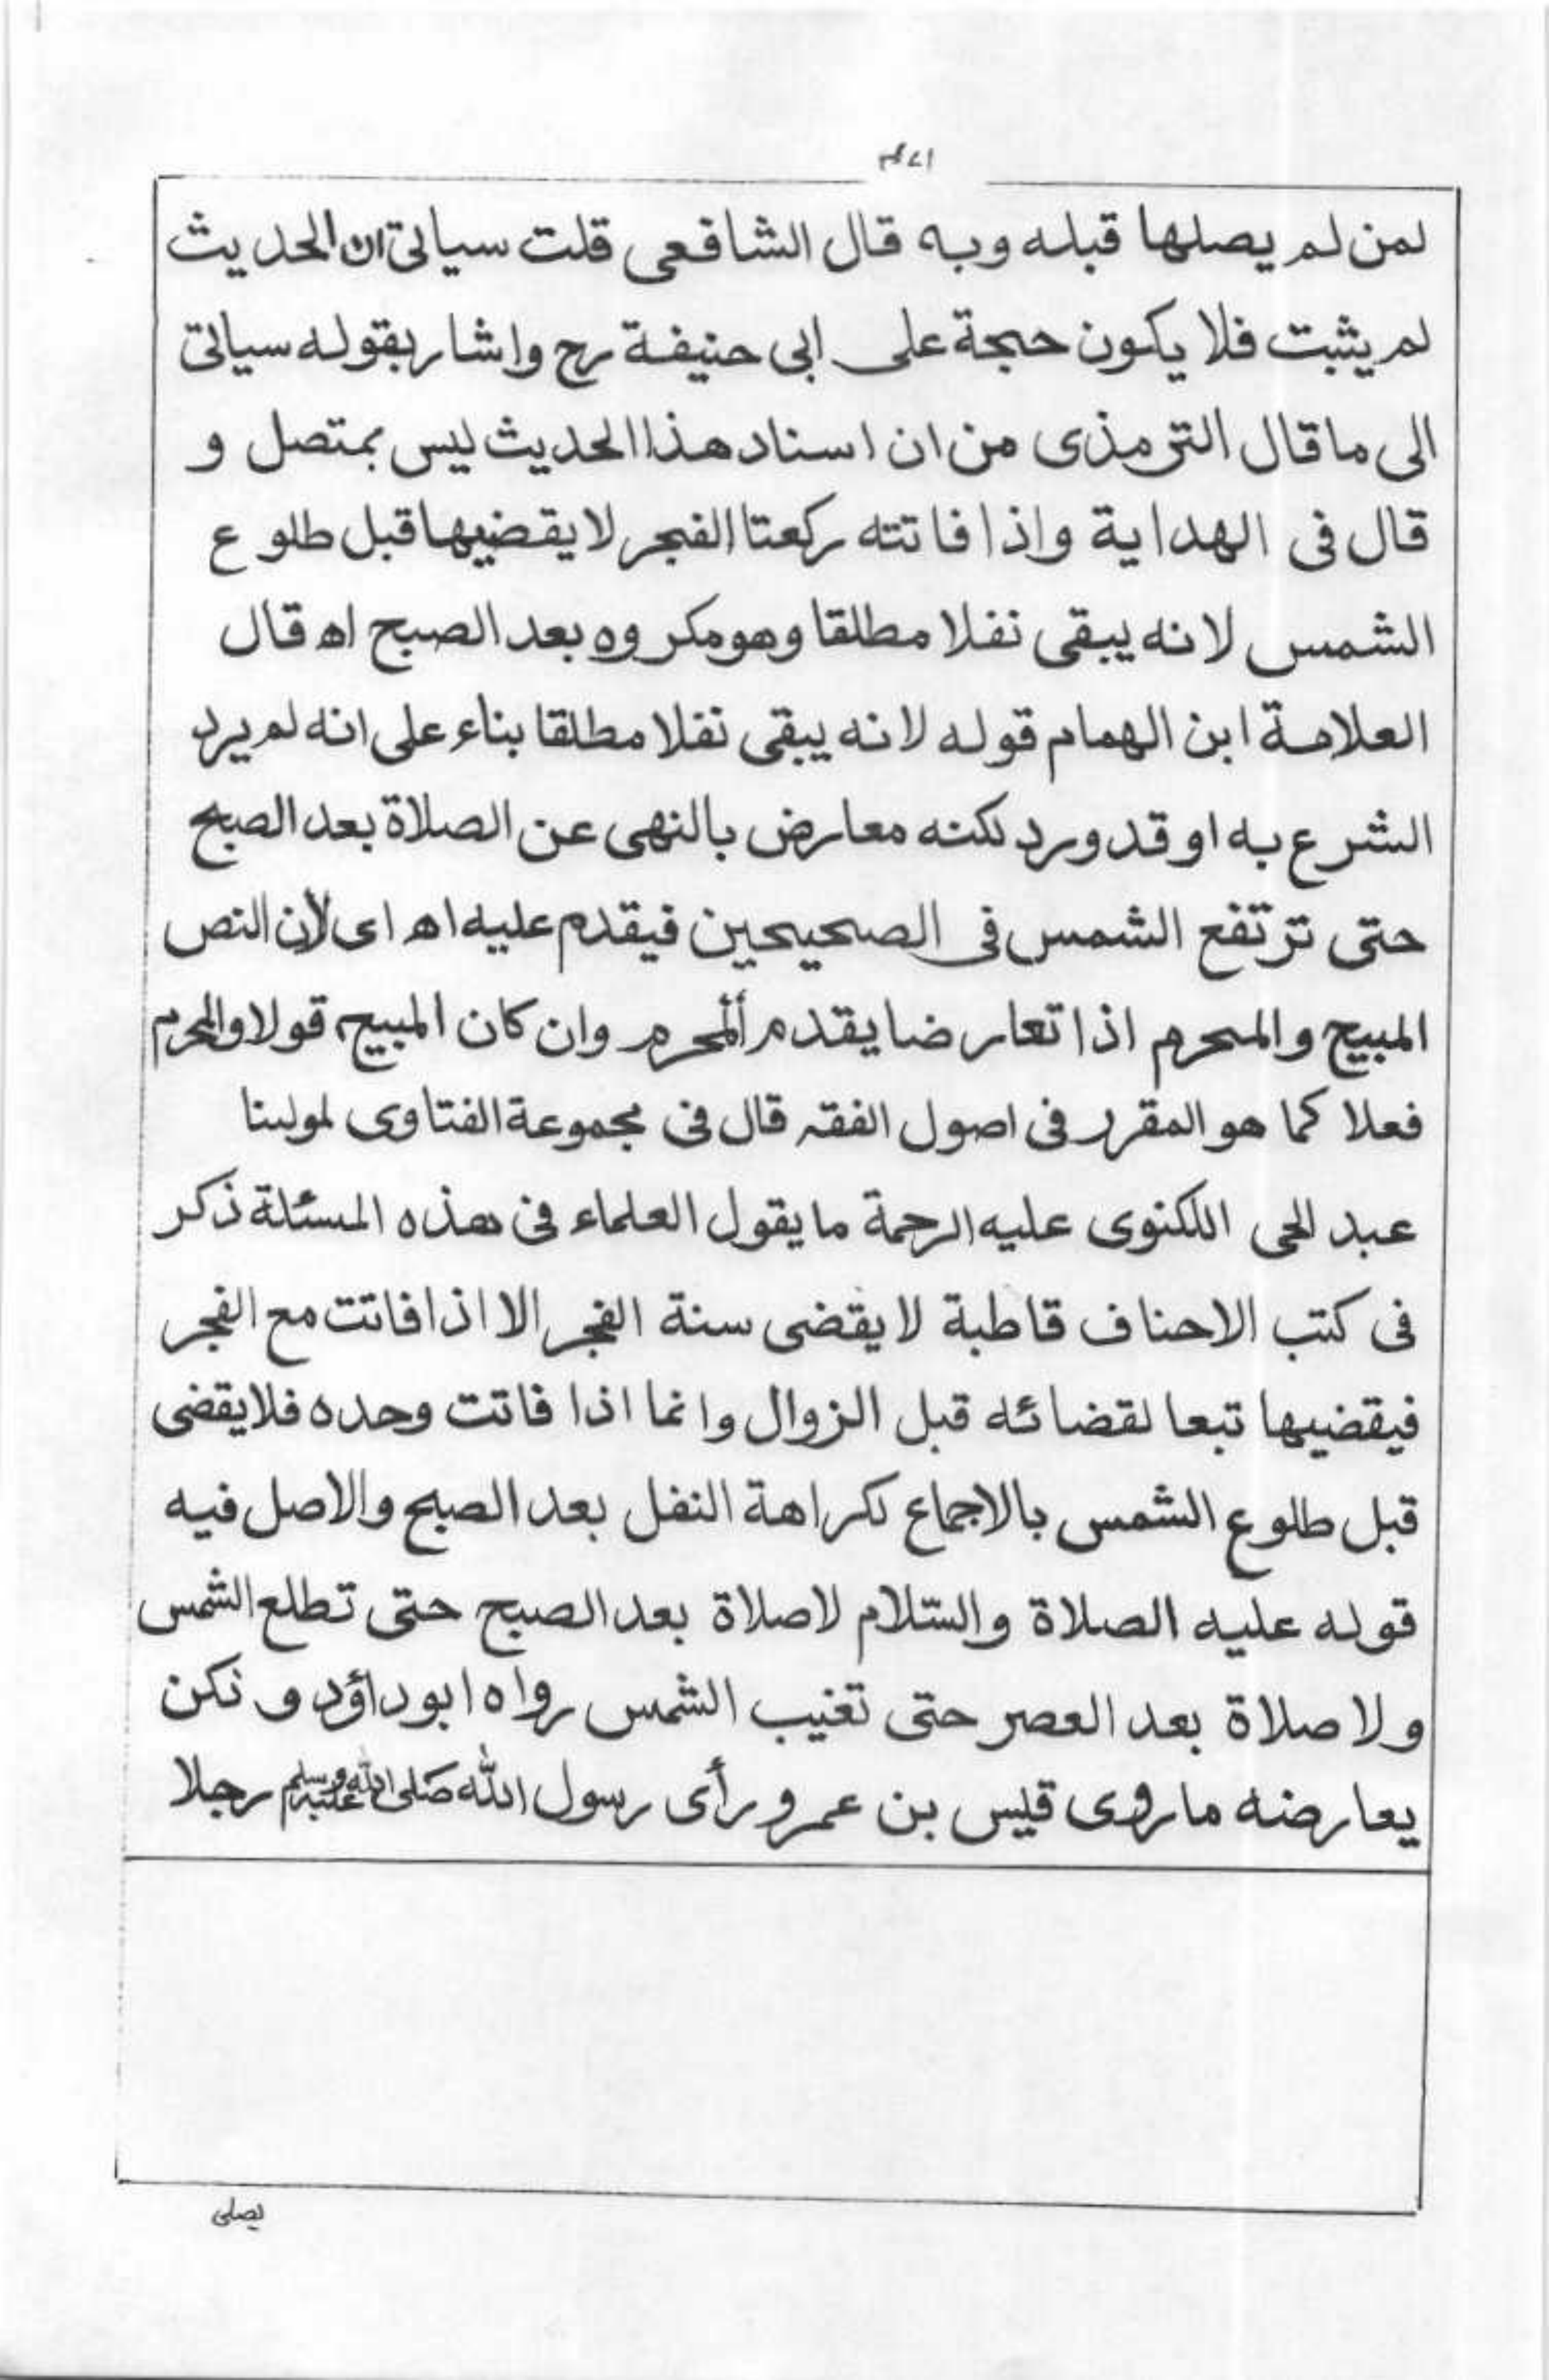 لمن لم يصلها قبله وبه قال الشافعى قلت سياتى ان الحديث
لم يثبت فلا يكون حجة على ابى حنيفة رح واشار بقوله سياتى
الى ما قال الترمذى من ان اسناد هذا الحديث ليس بمتصل و
قال فى الهداية واذا فاتته ركعتا الفجر لا يقضيها قبل طلوع
الشمس لانه يبقى نفلا مطلقا وهو مكروه بعد الصبح اه قال
العلامة ابن الهمام قوله لانه يبقى نفلا مطلقا بناء على انه لم يرد
الشرع به او قد ورد لكنه معارض بالنهى عن الصلاة بعد الصبح
حتى ترتفع الشمس فى الصحيحين فيقدم عليه اه اى لأن النص
المبيح والمحرم اذا تعارضا يقدم ألمحرم وان كان المبيح قولا والمحرم
فعلا كما هو المقرر فى اصول الفقه قال فى مجموعة الفتاوى لمولىنا
عبد الحى اللكنوى عليه الرحمة ما يقول العلماء فى هذه المسئلة ذكر
فى كتب الاحناف قاطبة لا يقضى سنة الفجر الا اذا فاتت مع الفجر
فيقضيها تبعا لقضائه قبل الزوال وانما اذا فاتت وحده فلا يقضى
قبل طلوع الشمس بالاجماع لكراهة النفل بعد الصبح والاصل فيه
قوله عليه الصلاة والسّلام لاصلاة بعد الصبح حتى تطلع الشمس
ولا صلاة بعد العصر حتى تغيب الشمس رواه ابوداؤد ونكن
يعارضه ما روى قيس بن عمرو رأى رسول الله صَلى الله عليه وسلم رجلا
يصلى